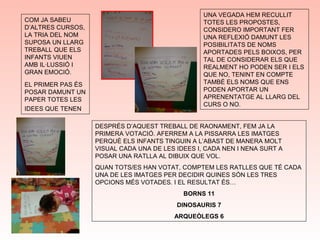 COM JA SABEU
D'ALTRES CURSOS,
LA TRIA DEL NOM
SUPOSA UN LLARG
TREBALL QUE ELS
INFANTS VIUEN
AMB IL·LUSSIÓ I
GRAN EMOCIÓ.
EL PRIMER PAS ÉS
POSAR DAMUNT UN
PAPER TOTES LES
IDEES QUE TENEN
UNA VEGADA HEM RECULLIT
TOTES LES PROPOSTES,
CONSIDERO IMPORTANT FER
UNA REFLEXIÓ DAMUNT LES
POSIBILITATS DE NOMS
APORTADES PELS BOIXOS, PER
TAL DE CONSIDERAR ELS QUE
REALMENT HO PODEN SER I ELS
QUE NO, TENINT EN COMPTE
TAMBÉ ELS NOMS QUE ENS
PODEN APORTAR UN
APRENENTATGE AL LLARG DEL
CURS O NO.
DESPRÉS D'AQUEST TREBALL DE RAONAMENT, FEM JA LA
PRIMERA VOTACIÓ. AFERREM A LA PISSARRA LES IMATGES
PERQUÈ ELS INFANTS TINGUIN A L'ABAST DE MANERA MOLT
VISUAL CADA UNA DE LES IDEES I, CADA NEN I NENA SURT A
POSAR UNA RATLLA AL DIBUIX QUE VOL.
QUAN TOTS/ES HAN VOTAT, COMPTEM LES RATLLES QUE TÉ CADA
UNA DE LES IMATGES PER DECIDIR QUINES SÓN LES TRES
OPCIONS MÉS VOTADES. I EL RESULTAT ÉS…
BORNS 11
DINOSAURIS 7
ARQUEÒLEGS 6